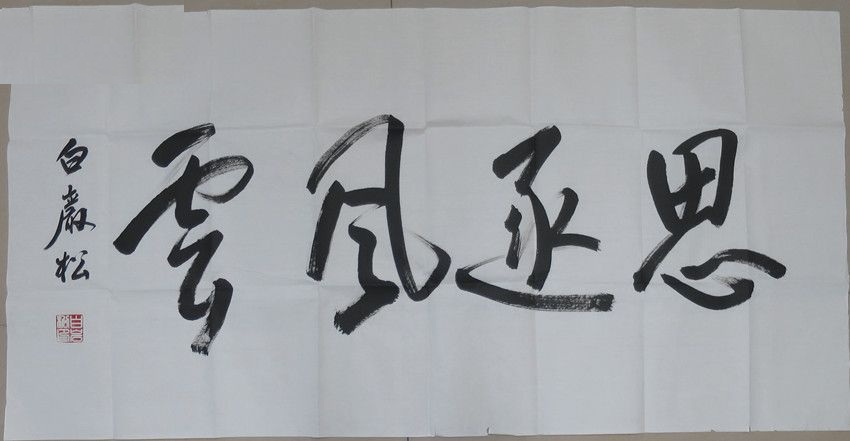 思逐風雲
白巖松